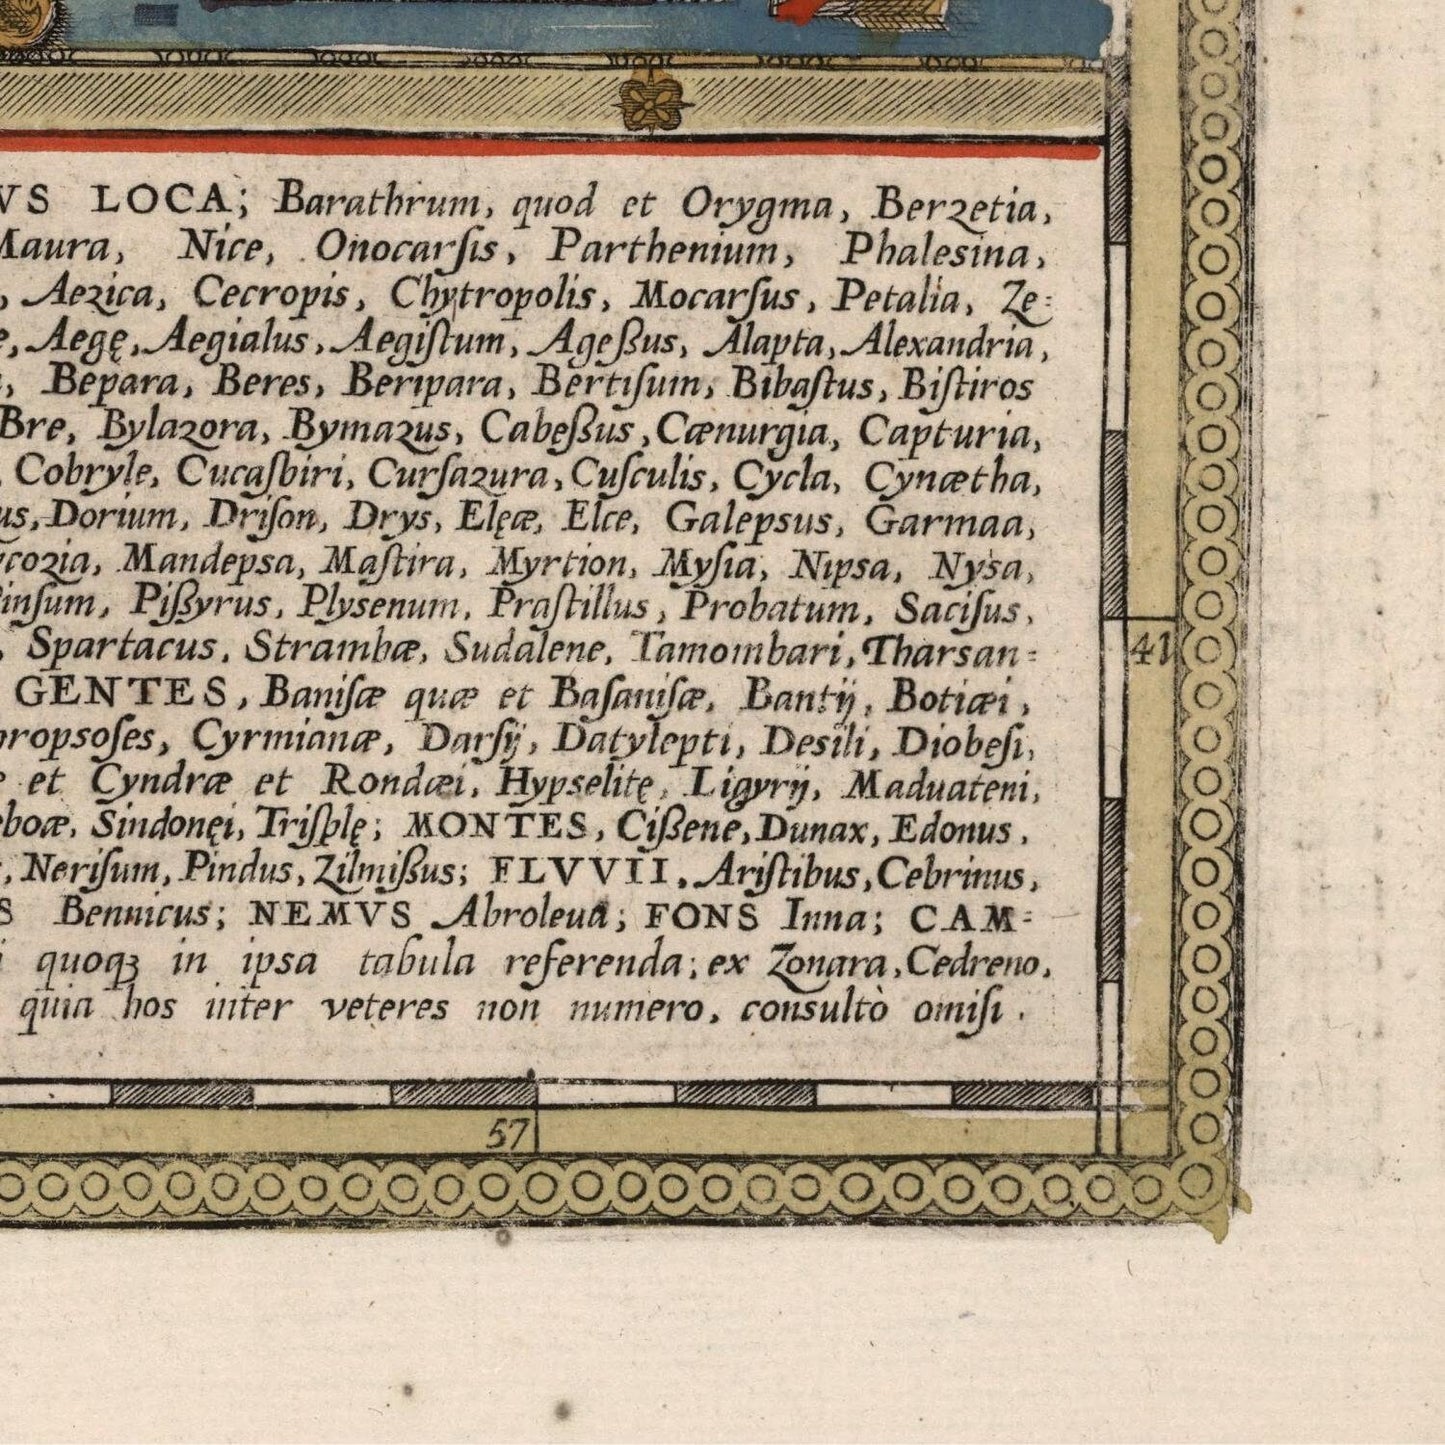 VS LOCA; Barathrum, quod et Orygma, Berzetia,
Maura, Nice, Onocarſis, Parthenium, Phalesina,
, Aezica, Cecropis, Chytropolis, Mocarſus, Petalia, Ze=
e, Aegę, Aegialus, Aegiſtum, Ageßus, Alapta, Alexandria,
, Bepara, Beres, Beripara, Bertiſum, Bibaſtus, Biſtiros
Bre, Bylazora, Bymazus, Cabeßus, Cænurgia, Capturia,
, Cobryle, Cucaſbiri, Curſazura, Cuſculis, Cycla, Cynætha,
us, Dorium, Driſon, Drys, Elęæ, Elce, Galepsus, Garmaa,
ycozia, Mandepsa, Maſtira, Myrtion, Myſia, Nipsa, Nysa,
inſum, Pißyrus, Plysenum, Praſtillus, Probatum, Saciſus,
, Spartacus, Strambæ, Sudalene, Tamombari, Tharsan=
41
GENTES, Baniſæ quæ et Baſaniſæ, Bantij, Botiæi,
propsoſes, Cyrmianæ, Darſij, Datylepti, Desili, Diobeſi,
e et Cyndræ et Rondæi, Hypselitę, Ligyrij, Maduateni,
eboæ, Sindonęi, Triſplę; MONTES, Cißene, Dunax, Edonus,
, Neriſum, Pindus, Zilmißus; FLVVII, Ariſtibus, Cebrinus,
S Bennicus; NEMVS Abroleua; FONS Inna; CAM=
i quoqꝫ in ipsa tabula referenda; ex Zonara, Cedreno,
quia hos inter veteres non numero, consultò omiſi.
57